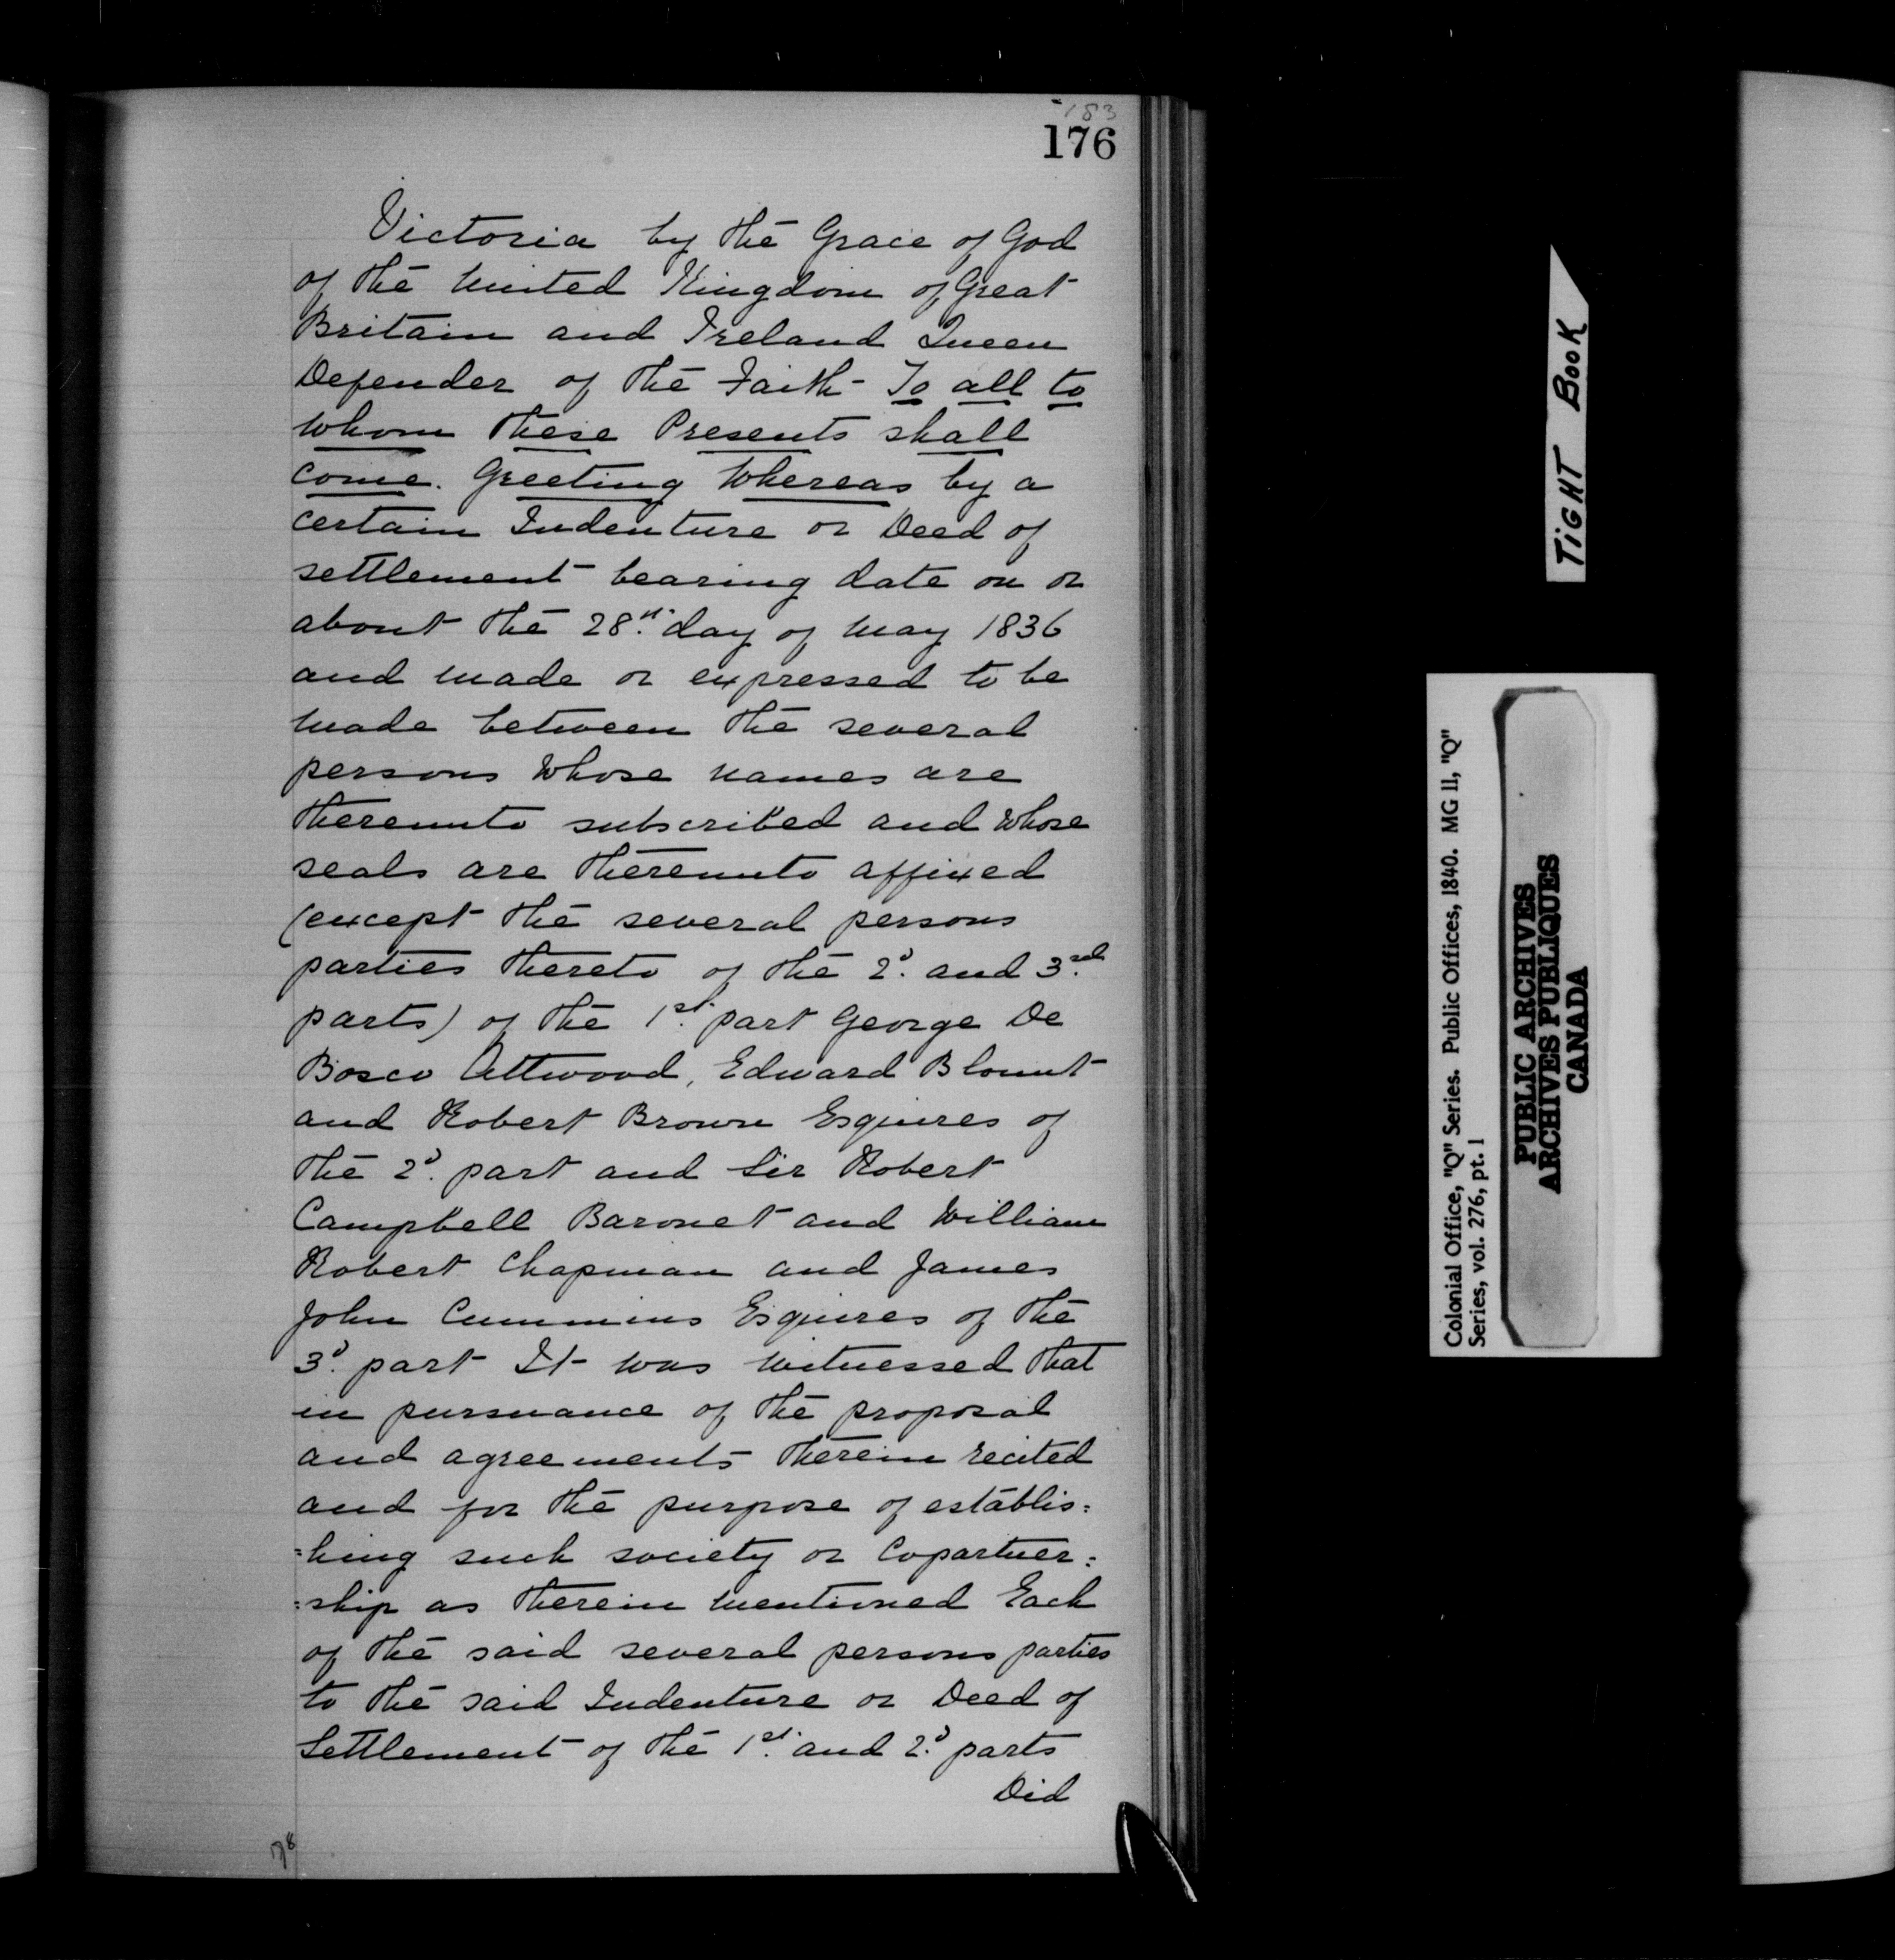 183
176
Victoria by the Grace of God
of the United Kingdom of Great
Britain and Ireland Queen
Defender of the Faith - To all to
whom these Presents shall
come. Greeting Whereas by a
certain Indenture or Deed of
settlement bearing date on or
about the 28th. day of May 1836
and made or expressed to be
made between the several
persons whose names are
thereunto subscribed and whose
seals are thereunto affixed
(except the several persons
parties thereto of the 2d. and 3rd.
parts) of the 1st. part George De
Bosco Attwood, Edward Blount
and Robert Brown Esquires of
the 2d. part and Sir Robert
Campbell Baronet and William
Robert Chapman and James
John Cummins Esquires of the
3d. part It was witnessed that
in pursuance of the proposal
and agreements therein recited
and for the purpose of establis=
=hing such society or Copartner=
=ship as therein mentioned Each
of the said several persons parties
to the said Indenture or Deed of
Settlement of the 1st. and 2d. parts
Did
78
TIGHT BOOK
Colonial Office, "Q" Series. Public Offices, 1840. MG 11, "Q"
Series, vol. 276, pt. 1
PUBLIC ARCHIVES
ARCHIVES PUBLIQUES
CANADA